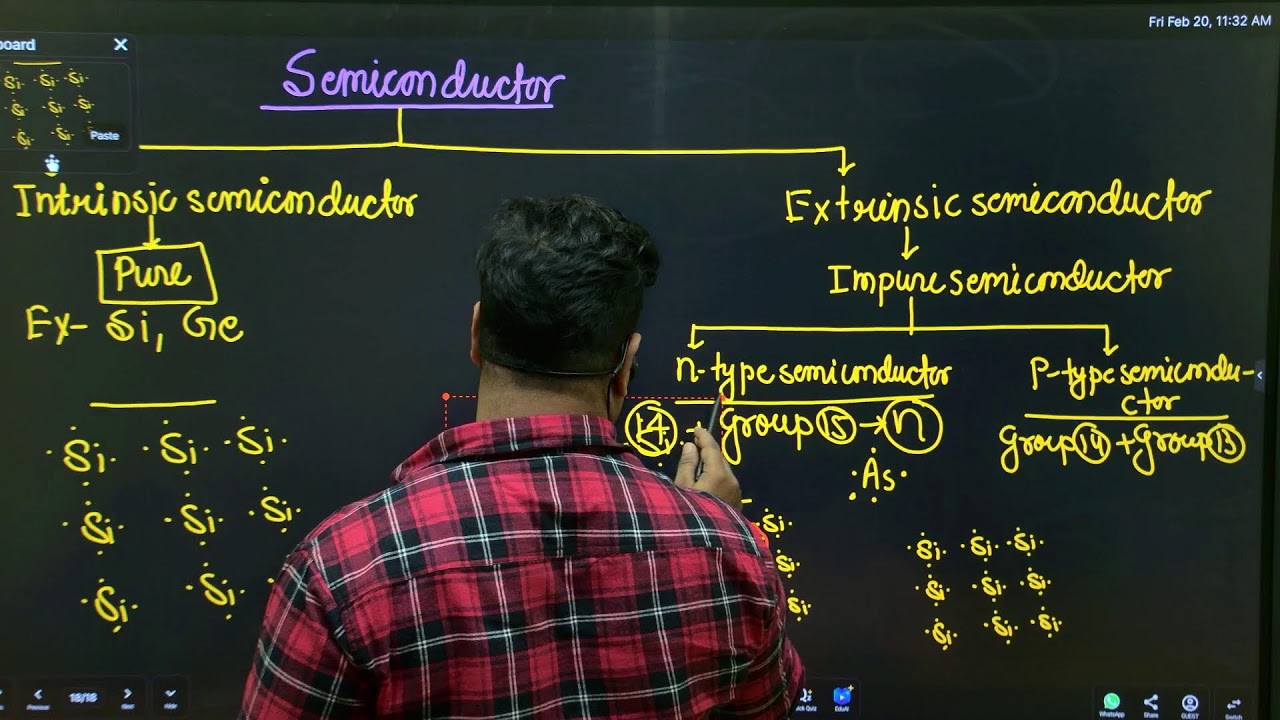 Fri Feb 20, 11:32 AM
board
Si Si Si
Si Si Si
Si Si
Paste
Semiconductor
Intrinsic semiconductor
Pure
Ex- Si, Ge
Si Si Si
Si Si Si
Si Si
Extrinsic semiconductor
Impure semiconductor
n-type semiconductor
14 + Group 15 → n
As
Si
Si
Si
P-type semicondu-
ctor
Group 14 + Group 13
Si Si Si
Si Si Si
Si Si Si
Previous
18/18
Next
Hide
ick Quiz
EduAI
WhatsApp
Share
GUEST
Switch